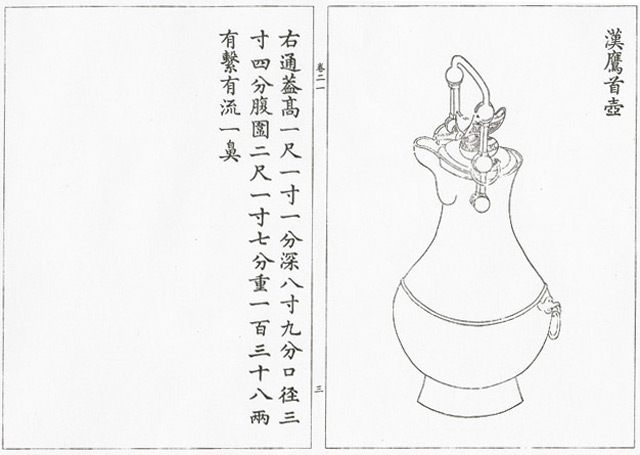 漢鷹首壺
卷二一
三
右通葢高一尺一寸一分深八寸九分口徑三
寸四分腹圍二尺一寸七分重一百三十八兩
有繫有流一鼻